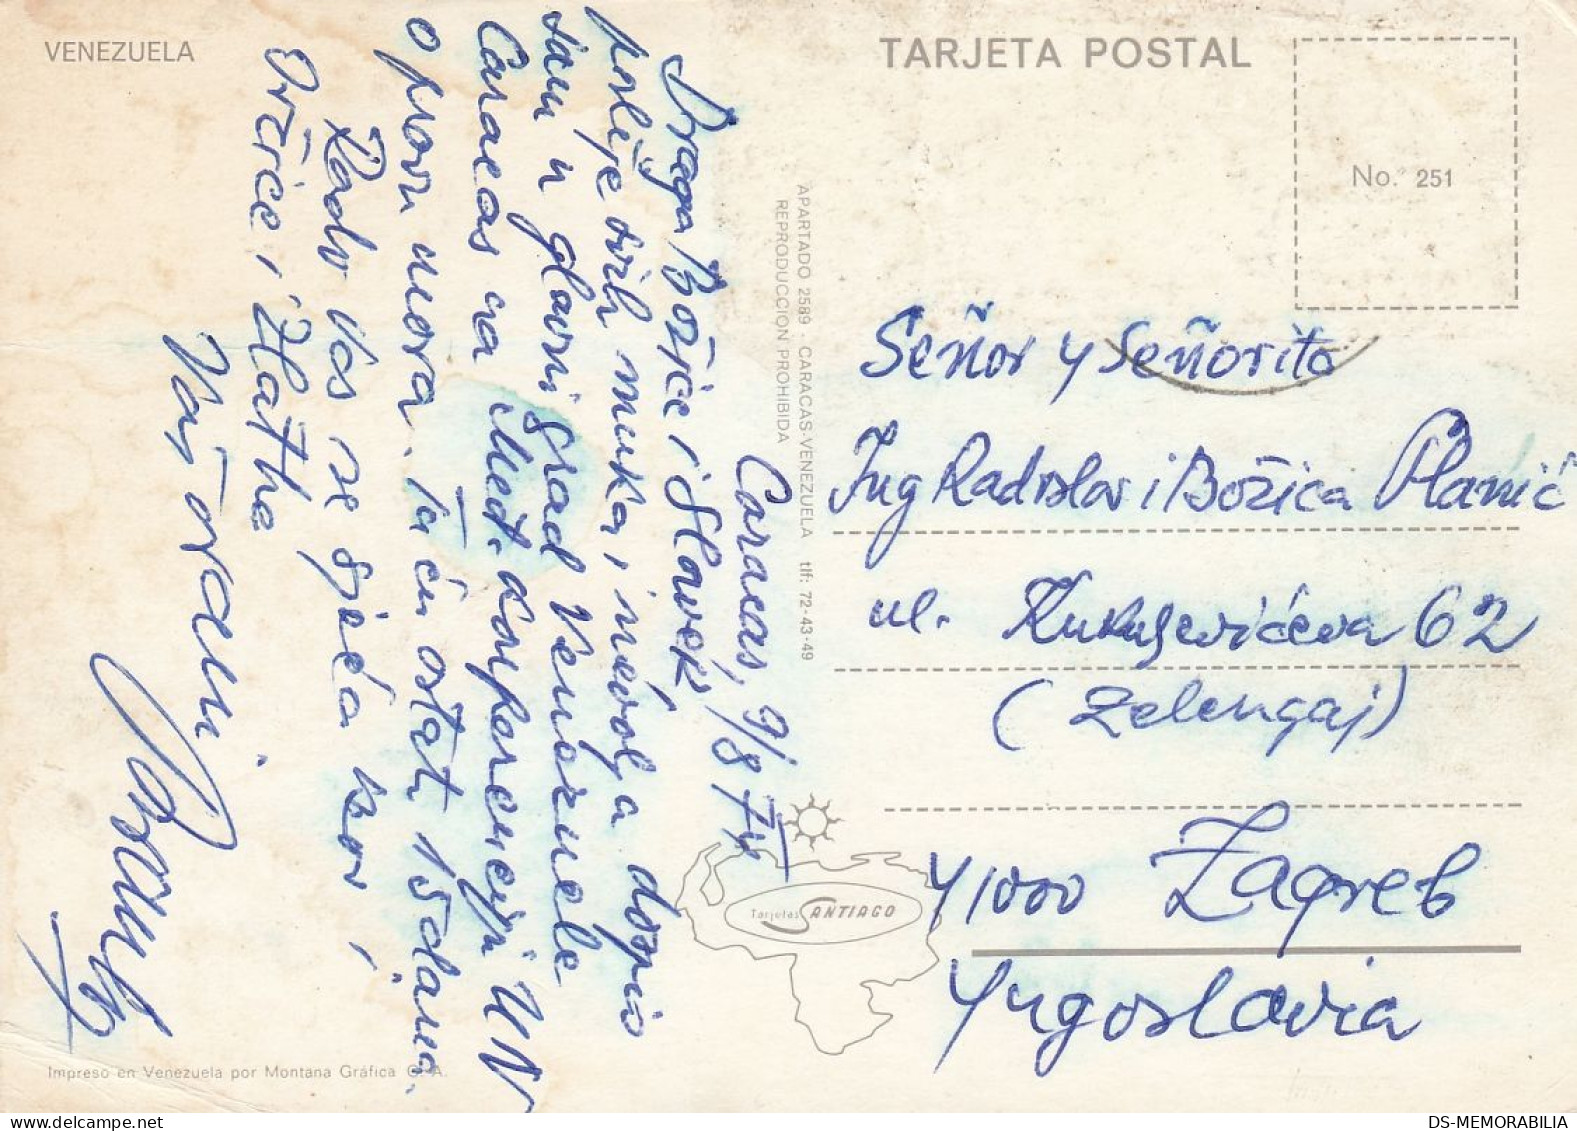 VENEZUELA
TARJETA POSTAL
No. 251
Caracas, 9/8 74
Draga Božice i Slavek,
poslije svih muka, i nevolja dospio
sam u glavni grad Venezuele
Caracas na Međ. konferenciju UN
o pravu mora. Tu ću ostati 15 dana.
Rado Vas se sjeća kao i
Božice i Zlatka
Vaš odani
APARTADO 2589 - CARACAS-VENEZUELA tlf: 72-43-49
REPRODUCCION PROHIBIDA
Tarjetas SANTIAGO
Señor y Señorita
Ing Radoslav i Božica Planić
ul. Kukuljevićeva 62
(Zelengaj)
41000 Zagreb
Yugoslavia
Impreso en Venezuela por Montana Gráfica C. A.
DS-MEMORABILIA